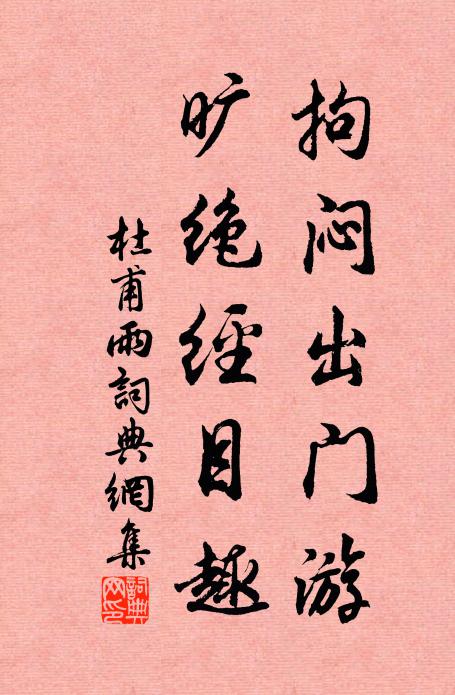 拘闷出门游
旷绝经目趣
杜甫雨詞典網集
詞典網印